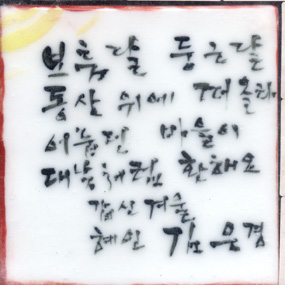 보름달 둥근달
동산 위에 떠올라
어둡던 마을이
대낮처럼 환해요
갑신 겨울
혜인